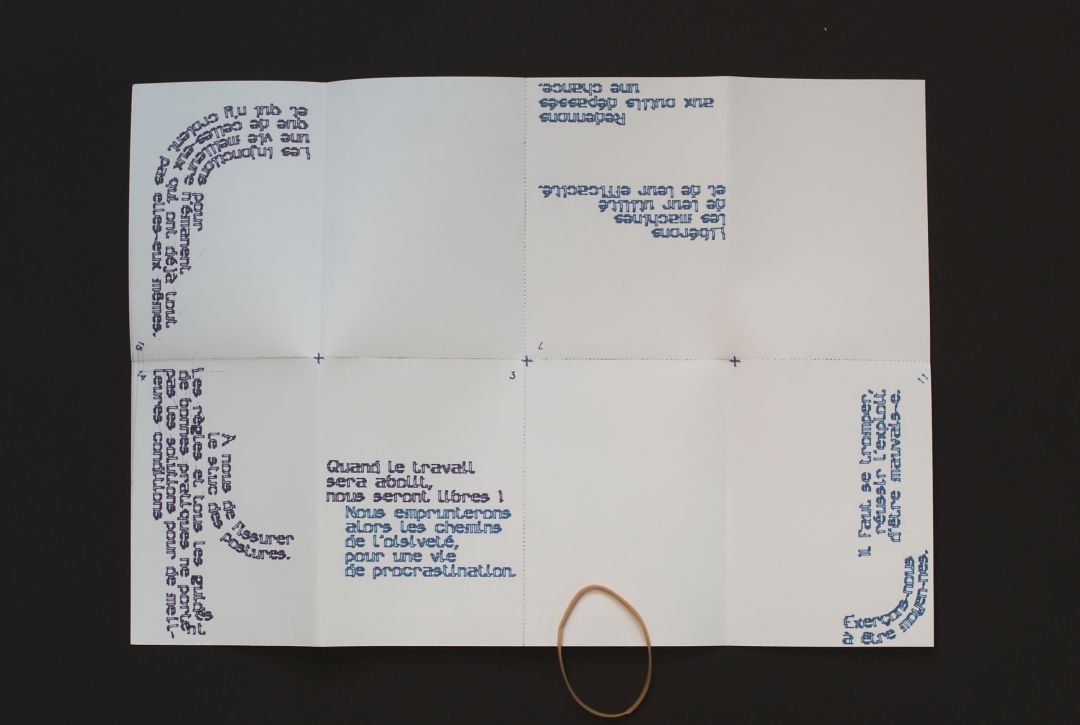 Les injonctions pour
une vie meilleure n'émanent
que de celles-eux qui ont déjà tout
et qui n'y croient pas elles-eux mêmes.
15
Libérons
les machines
de leur utilité
et de leur efficacité.
Redonnons
aux outils dépassés
une chance.
14
Les règles et tous les guides
de bonnes pratiques ne
pas les solutions pour de meil-
leures conditions
À nous de fissurer
le stuc des postures.
3
Quand le travail
sera abolit,
nous seront libres !
Nous emprunterons
alors les chemins
de l'oisiveté,
pour une vie
de procrastination.
11
Il faut se tromper,
réussir l'exploit
d'être mauvais-e.
Exerçons-nous
à être moyen-nes.